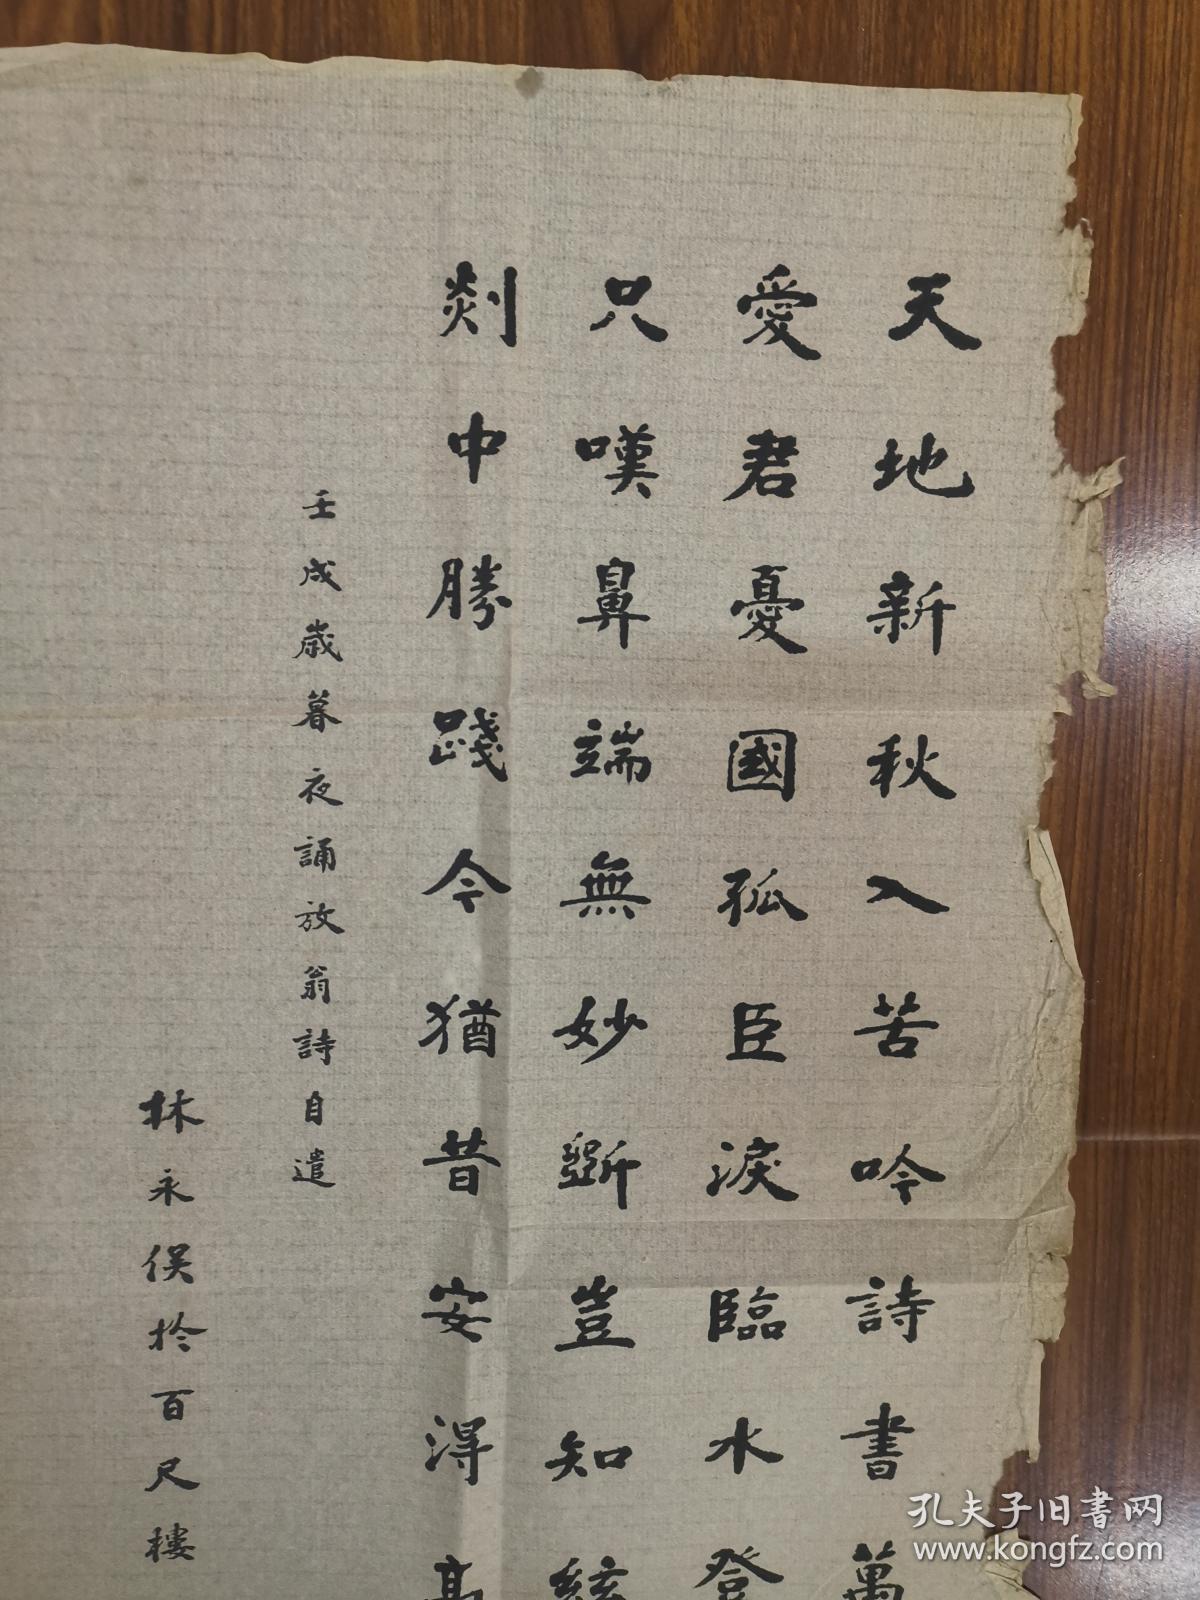 天地新秋入苦吟詩書萬
愛君憂國孤臣淚臨水登
只嘆鼻端無妙斲豈知絃
剡中勝踐今猶昔安得高
壬戌歲暮夜誦放翁詩自遣
林永俣於百尺樓
孔夫子旧书网
www.kongfz.com